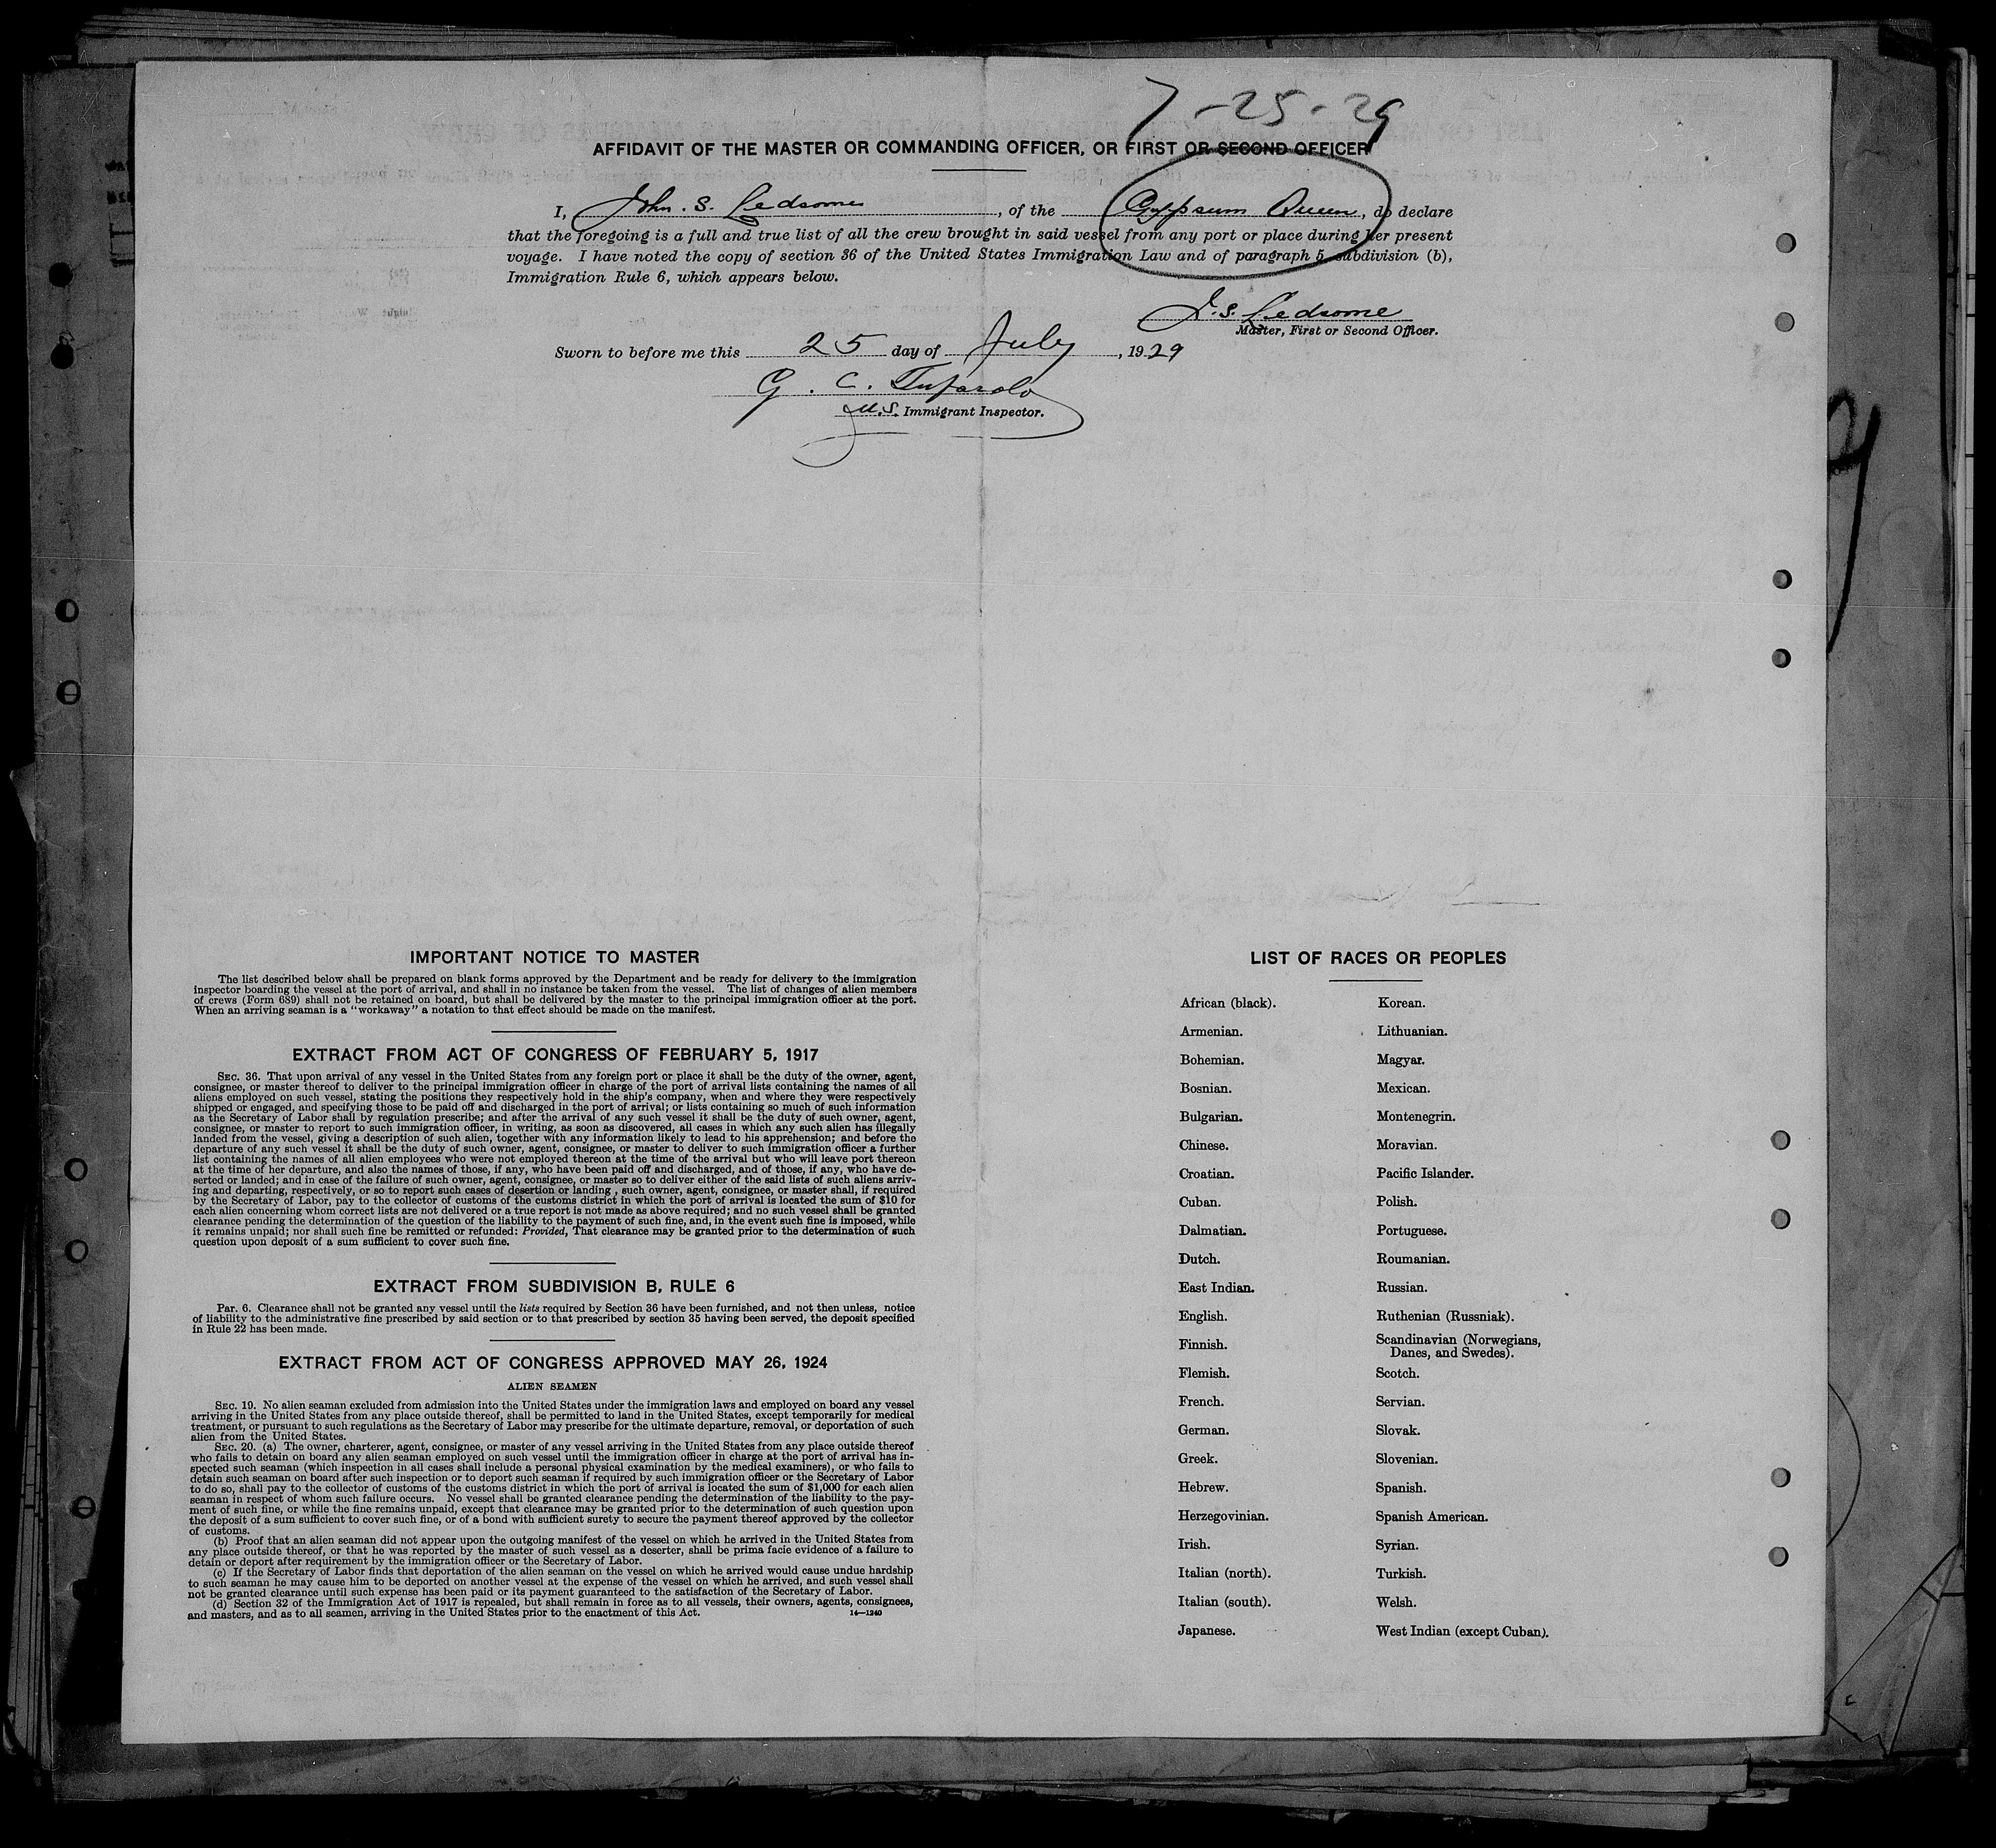 7-25-29
AFFIDAVIT OF THE MASTER OR COMMANDING OFFICER, OR FIRST OR SECOND OFFICER
I, John. S. Ledsome, of the Gypsum Queen, do declare
that the foregoing is a full and true list of all the crew brought in said vessel from any port or place during her present
voyage. I have noted the copy of section 36 of the United States Immigration Law and of paragraph 5 subdivision (b),
Immigration Rule 6, which appears below.
J. S. Ledsome
Master, First or Second Officer.
Sworn to before me this 25 day of July, 1929
G. C.
U.S. Immigrant Inspector.
IMPORTANT NOTICE TO MASTER
The list described below shall be prepared on blank forms approved by the Department and be ready for delivery to the immigration
inspector boarding the vessel at the port of arrival, and shall in no instance be taken from the vessel. The list of changes of alien members
of crews (Form 689) shall not be retained on board, but shall be delivered by the master to the principal immigration officer at the port.
When an arriving seaman is a "workaway" a notation to that effect should be made on the manifest.
EXTRACT FROM ACT OF CONGRESS OF FEBRUARY 5, 1917
SEC. 36. That upon arrival of any vessel in the United States from any foreign port or place it shall be the duty of the owner, agent,
consignee, or master thereof to deliver to the principal immigration officer in charge of the port of arrival lists containing the names of all
aliens employed on such vessel, stating the positions they respectively hold in the ship's company, when and where they were respectively
shipped or engaged, and specifying those to be paid off and discharged in the port of arrival; or lists containing so much of such information
as the Secretary of Labor shall by regulation prescribe; and after the arrival of any such vessel it shall be the duty of such owner, agent,
consignee, or master to report to such immigration officer, in writing, as soon as discovered, all cases in which any such alien has illegally
landed from the vessel, giving a description of such alien, together with any information likely to lead to his apprehension; and before the
departure of any such vessel it shall be the duty of such owner, agent, consignee, or master to deliver to such immigration officer a further
list containing the names of all alien employees who were not employed thereon at the time of the arrival but who will leave port thereon
at the time of her departure, and also the names of those, if any, who have been paid off and discharged, and of those, if any, who have de-
serted or landed; and in case of the failure of such owner, agent, consignee, or master so to deliver either of the said lists of such aliens arriv-
ing and departing, respectively, or so to report such cases of desertion or landing , such owner, agent, consignee, or master shall, if required
by the Secretary of Labor, pay to the collector of customs of the customs district in which the port of arrival is located the sum of $10 for
each alien concerning whom correct lists are not delivered or a true report is not made as above required; and no such vessel shall be granted
clearance pending the determination of the question of the liability to the payment of such fine, and, in the event such fine is imposed, while
it remains unpaid; nor shall such fine be remitted or refunded: Provided, That clearance may be granted prior to the determination of such
question upon deposit of a sum sufficient to cover such fine.
EXTRACT FROM SUBDIVISION B, RULE 6
Par. 6. Clearance shall not be granted any vessel until the lists required by Section 36 have been furnished, and not then unless, notice
of liability to the administrative fine prescribed by said section or to that prescribed by section 35 having been served, the deposit specified
in Rule 22 has been made.
EXTRACT FROM ACT OF CONGRESS APPROVED MAY 26, 1924
ALIEN SEAMEN
SEC. 19. No alien seaman excluded from admission into the United States under the immigration laws and employed on board any vessel
arriving in the United States from any place outside thereof, shall be permitted to land in the United States, except temporarily for medical
treatment, or pursuant to such regulations as the Secretary of Labor may prescribe for the ultimate departure, removal, or deportation of such
alien from the United States.
SEC. 20. (a) The owner, charterer, agent, consignee, or master of any vessel arriving in the United States from any place outside thereof
who fails to detain on board any alien seaman employed on such vessel until the immigration officer in charge at the port of arrival has in-
spected such seaman (which inspection in all cases shall include a personal physical examination by the medical examiners), or who fails to
detain such seaman on board after such inspection or to deport such seaman if required by such immigration officer or the Secretary of Labor
to do so, shall pay to the collector of customs of the customs district in which the port of arrival is located the sum of $1,000 for each alien
seaman in respect of whom such failure occurs. No vessel shall be granted clearance pending the determination of the liability to the pay-
ment of such fine, or while the fine remains unpaid, except that clearance may be granted prior to the determination of such question upon
the deposit of a sum sufficient to cover such fine, or of a bond with sufficient surety to secure the payment thereof approved by the collector
of customs.
(b) Proof that an alien seaman did not appear upon the outgoing manifest of the vessel on which he arrived in the United States from
any place outside thereof, or that he was reported by the master of such vessel as a deserter, shall be prima facie evidence of a failure to
detain or deport after requirement by the immigration officer or the Secretary of Labor.
(c) If the Secretary of Labor finds that deportation of the alien seaman on the vessel on which he arrived would cause undue hardship
to such seaman he may cause him to be deported on another vessel at the expense of the vessel on which he arrived, and such vessel shall
not be granted clearance until such expense has been paid or its payment guaranteed to the satisfaction of the Secretary of Labor.
(d) Section 32 of the Immigration Act of 1917 is repealed, but shall remain in force as to all vessels, their owners, agents, consignees,
and masters, and as to all seamen, arriving in the United States prior to the enactment of this Act.
14—1240
LIST OF RACES OR PEOPLES
African (black).
Armenian.
Bohemian.
Bosnian.
Bulgarian.
Chinese.
Croatian.
Cuban.
Dalmatian.
Dutch.
East Indian.
English.
Finnish.
Flemish.
French.
German.
Greek.
Hebrew.
Herzegovinian.
Irish.
Italian (north).
Italian (south).
Japanese.
Korean.
Lithuanian.
Magyar.
Mexican.
Montenegrin.
Moravian.
Pacific Islander.
Polish.
Portuguese.
Roumanian.
Russian.
Ruthenian (Russniak).
Scandinavian (Norwegians,
Danes, and Swedes).
Scotch.
Servian.
Slovak.
Slovenian.
Spanish.
Spanish American.
Syrian.
Turkish.
Welsh.
West Indian (except Cuban).